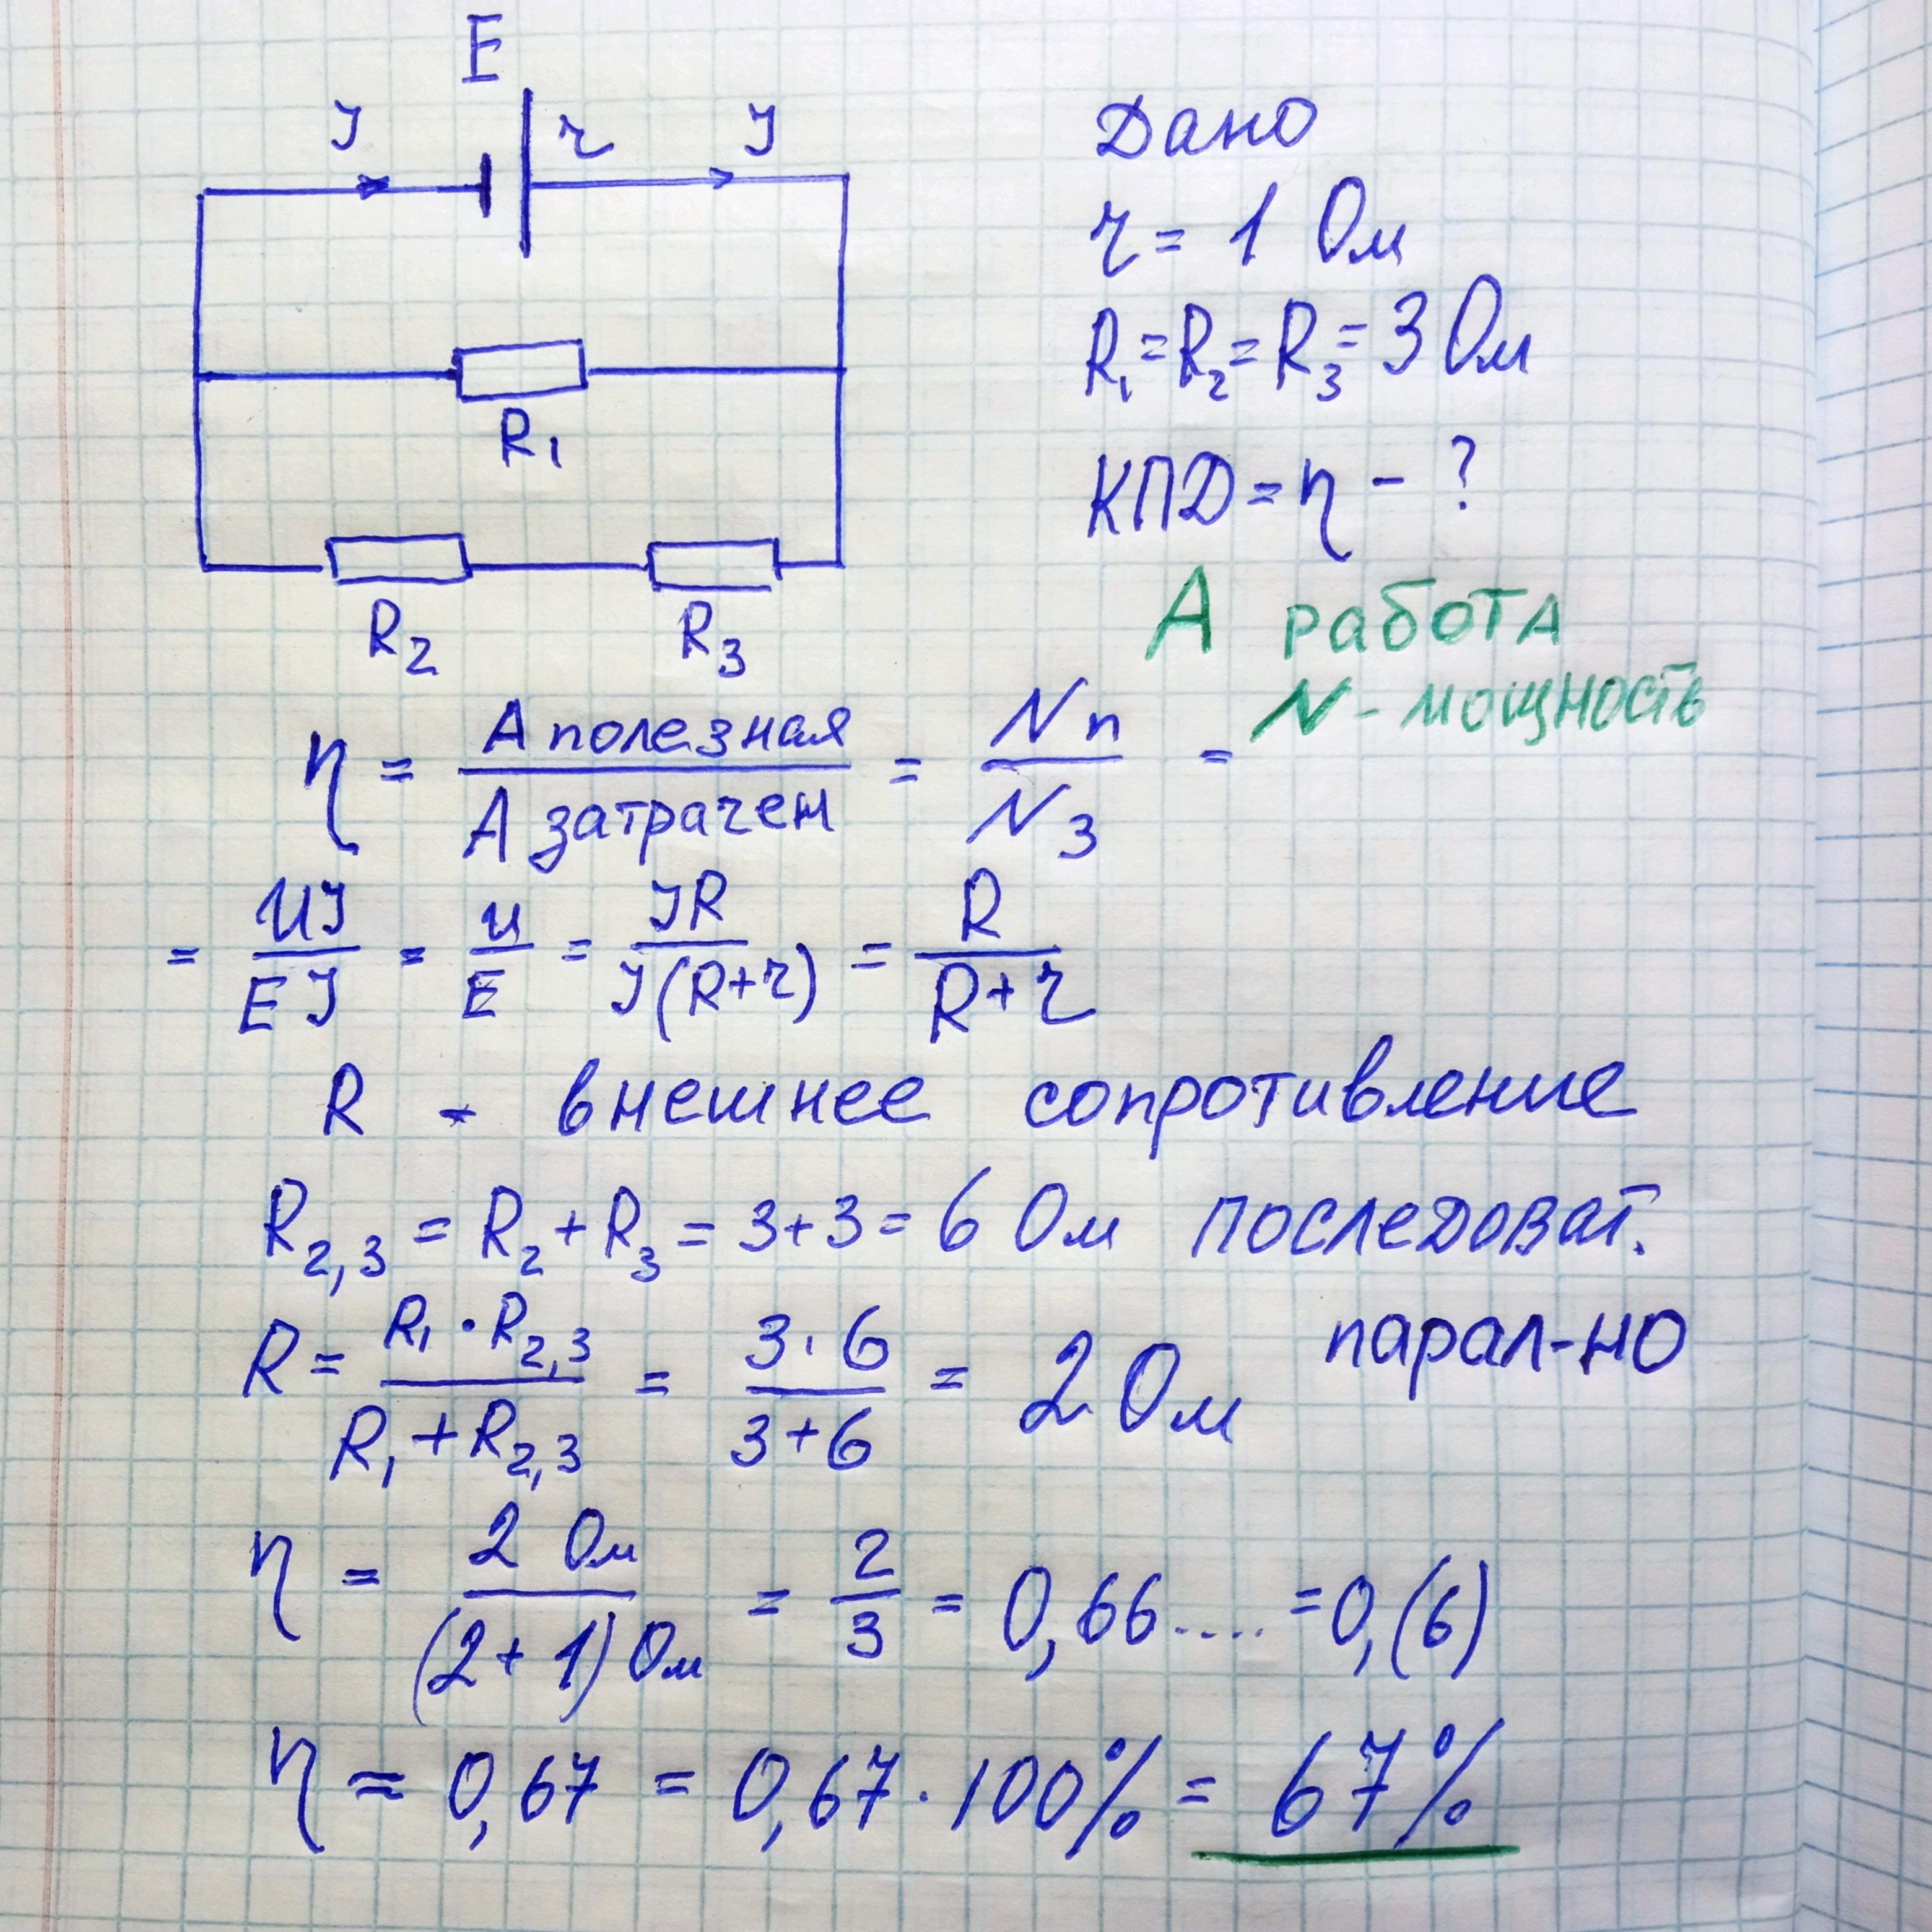 E
I r I
R₁
R₂ R₃
Дано
r = 1 Ом
R₁ = R₂ = R₃ = 3 Ом
КПД = η - ?
А работа
N - мощность
η = А полезная / А затрачен = Nп / Nз =
= UI / EI = U / E = IR / I(R+r) = R / R+r
R - внешнее сопротивление
R₂,₃ = R₂ + R₃ = 3+3 = 6 Ом последоват.
R = R₁ · R₂,₃ / R₁ + R₂,₃ = 3 · 6 / 3+6 = 2 Ом парал-но
η = 2 Ом / (2+1) Ом = 2 / 3 = 0,66.... = 0,(6)
η ≈ 0,67 = 0,67 · 100% = 67%